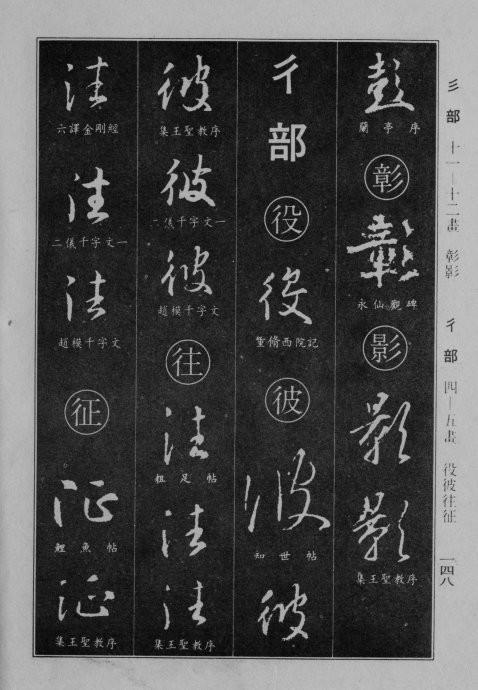 彡部 十一—十二畫 彰影 彳部 四—五畫 役彼往征 一四八
彭
蘭亭序
彰
彰
永仙觀碑
影
影
影
集王聖教序
彳部
役
役
重脩西院記
彼
彼
知世帖
彼
彼
集王聖教序
彼
二儀千字文一
彼
趙模千字文
往
往
粗足帖
往
往
集王聖教序
往
六譯金剛經
往
二儀千字文一
往
趙模千字文
征
征
鯉魚帖
征
集王聖教序